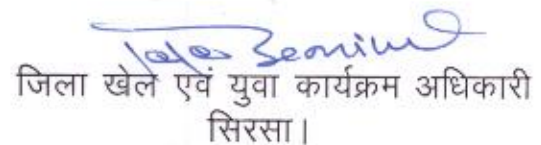 जिला खेल एवं युवा कार्यक्रम अधिकारी
सिरसा।